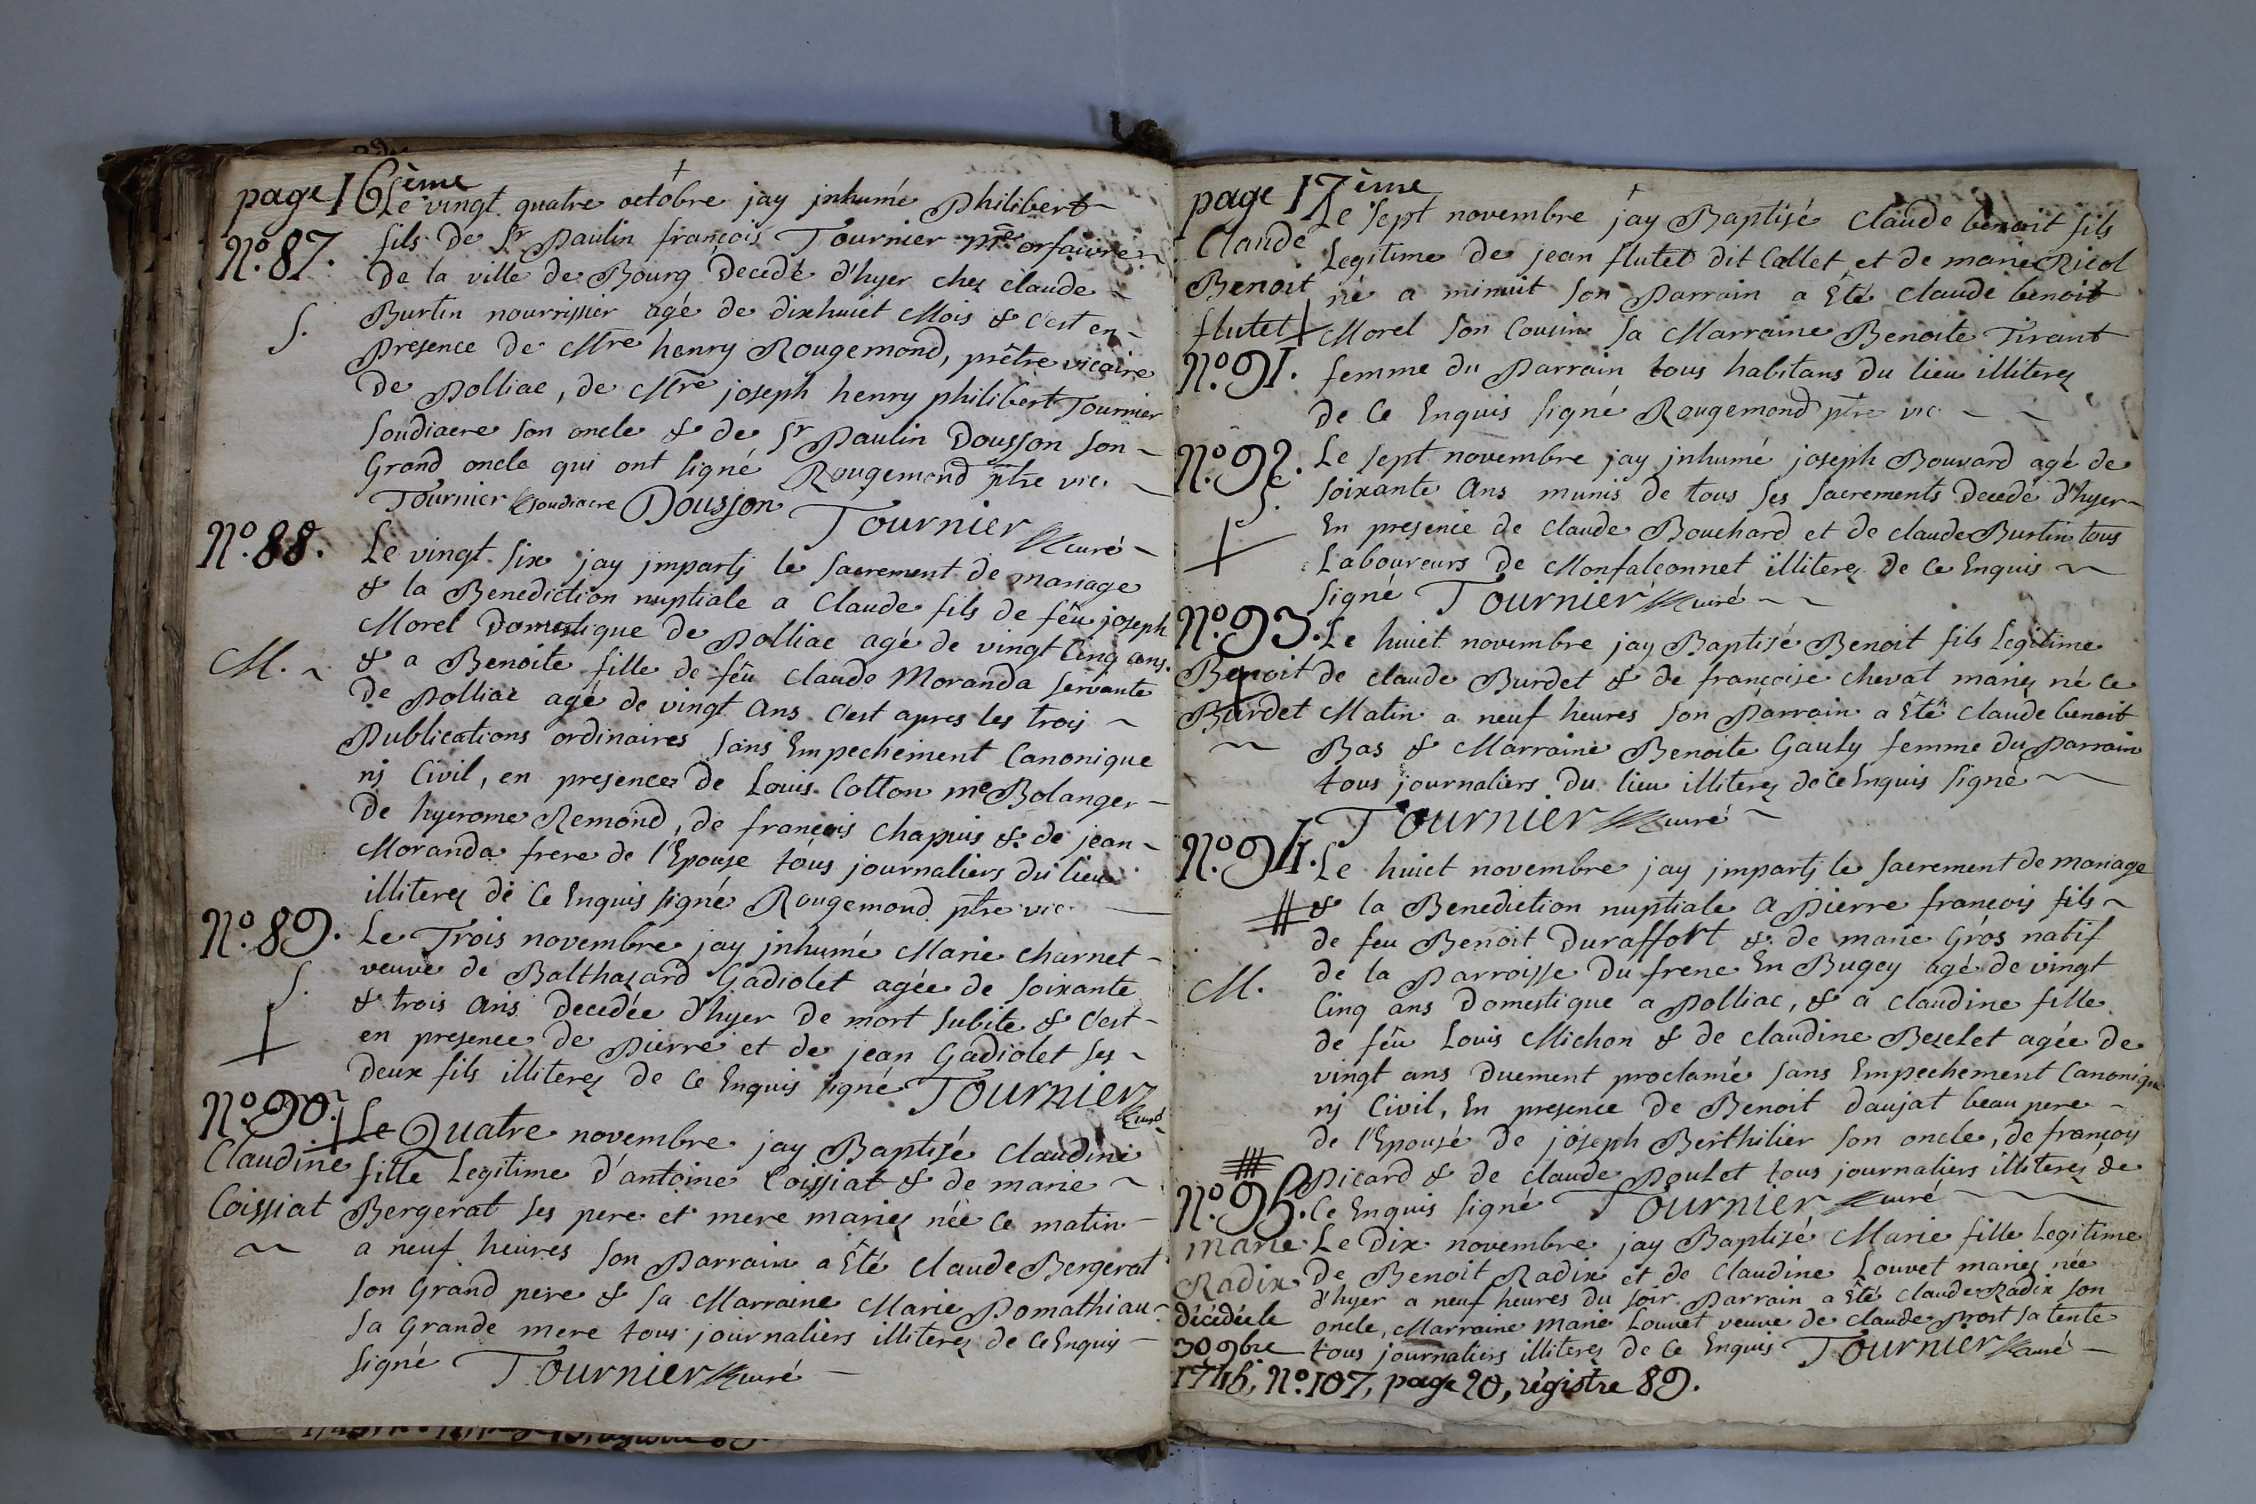 page 16ème
Le vingt quatre octobre jay jnhumé Philibert
N.º 87.
fils de Sr Paulin françois Tournier me orfaivre
De la ville de Bourg Decedé d'hyer chez claude
Burtin nourrissier agé de dixhuict Mois & c'est en
S.
Presence de Mtre henry Rougemond, prêtre vicaire
De Polliac, de Mtre joseph henry philibert Tournier
soudiacre son oncle & de Sr Paulin Dousson son
Grand oncle qui ont signé Rougemond ptre vic.
Tournier soudiacre Dousson Tournier curé
N.º 88.
Le vingt six jay jmpartj le sacrement de mariage
& la Benediction nuptiale a Claude fils de fêu joseph
Morel Domestique de Polliac agé de vingt Cinq ans.
M.
& a Benoite fille de fêu claude Moranda servante
De Polliac agé de vingt ans c'est apres les trois
Publications ordinaires sans Empechement Canonique
nj Civil, en presence de Louis Cotton me Bolanger
De hyerome Remond, de françois chappuis & de jean
Moranda frere de l'Epouse tous journaliers du lieu
illiterez de ce Enquis signé Rougemond ptre vic.
N.º 89.
Le Trois novembre jay jnhumé Marie charnet
veuve de Balthazard Gadiolet agée de soixante
S.
& trois ans Decedée d'hyer de mort subite & c'est
en presence de Pierre et de jean Gadiolet ses
deux fils illiterez de ce Enquis signé Tournier
curé
N.º 90.
Le Quatre novembre jay Baptisé claudine
Claudine
fille Legitime d'antoine Coissiat & de marie
Coissiat
Bergerat ses pere et mere mariez née ce matin
a neuf heures son Parrain a Eté claude Bergerat
son Grand pere & sa Marraine Marie Pomathiau
sa Grande mere tous journaliers illiterez de ce Enquis
signé Tournier curé
page 17ème
Le sept novembre jay Baptisé claude benoit fils
Claude
Legitime de jean flutet dit Collet et de marie Ricol
Benoit
né a minuit son Parrain a Eté claude benoit
flutet
Morel son Cousin sa Marraine Benoite Tirant
N.º 91.
femme du Parrain tous habitans du lieu illiterez
de ce Enquis signé Rougemond ptre vic
N.º 92.
Le sept novembre jay jnhumé joseph Bouvard agé de
S.
soixante ans munis de tous ses sacrements Decedé d'hyer
En presence de claude Bouchard et de claude Burtin tous
Laboureurs de Monfalconnet illiterez de ce Enquis
signé Tournier curé
N.º 93.
Le huict novembre jay Baptisé Benoit fils Legitime
Benoit
de claude Burdet & de françoise cheval mariez né ce
Burdet
Matin a neuf heures son Parrain a Eté claude benoit
Bas & Marraine Benoite Gauly femme du Parrain
tous journaliers du lieu illiterez de ce Enquis signé
Tournier curé
N.º 94.
Le huict novembre jay jmpartj le sacrement de mariage
& la Benediction nuptiale a Pierre françois fils
de feu Benoit Duraffort & de marie Gros natif
M.
de la Parroisse du frene En Bugey agé de vingt
Cinq ans Domestique a Polliac, & a claudine fille
de fêu Louis Michon & de claudine Bezelet agée de
vingt ans duement proclamé sans Empechement Canonique
nj Civil, En presence de Benoit daujat beau pere
de l'Epouse de joseph Berthilier son oncle, de françois
Picard & de claude Poulet tous journaliers illiterez de
N.º 95.
ce Enquis signé Tournier curé
marie
Le Dix novembre jay Baptisé Marie fille Legitime
Radix
De Benoit Radix et de claudine Louvet mariez née
d'hyer a neuf heures du soir Parrain a Eté claude Radix son
décédée le
oncle, Marraine marie Louvet veuve de claude Prost sa tente
30 9bre
tous journaliers illiterez de ce Enquis Tournier curé
1745, N.º 107, page 20, régistre 89.